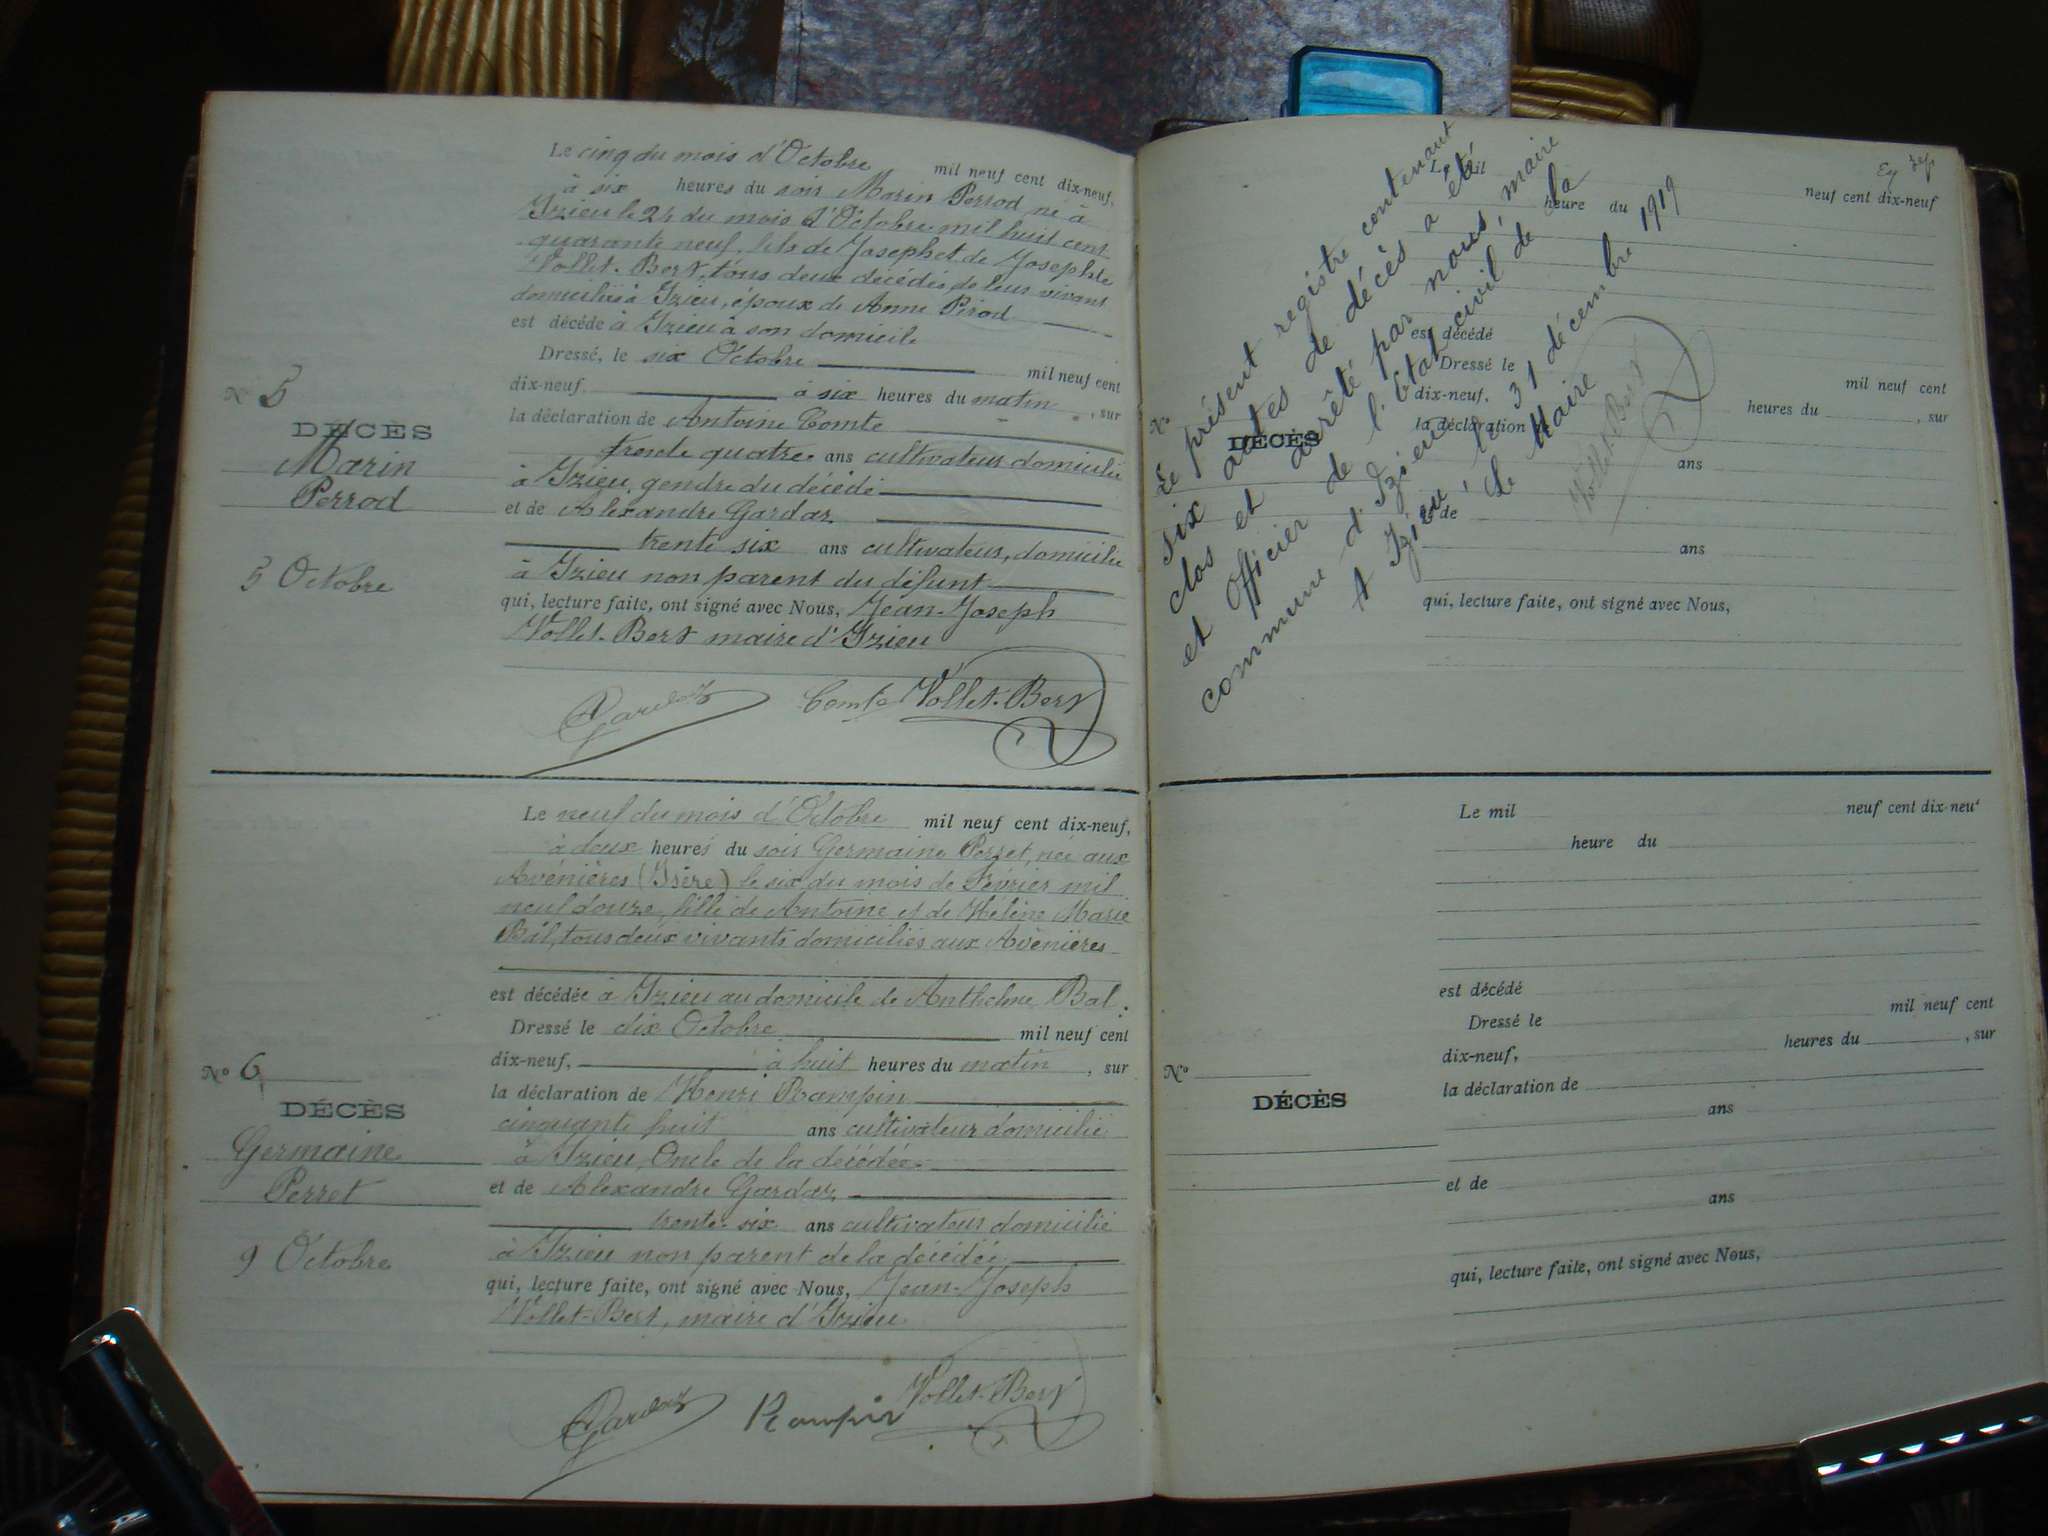 Le cinq du mois d'Octobre mil neuf cent dix-neuf,
à six heures du soir Marin Perrod né à
Izieu le 24 du mois d'Octobre mil huit cent
quarante neuf, fils de Joseph et de Josephte
Vollet-Bert, tous deux décédés, de leur vivant
domiciliés à Izieu, époux de Anne Pirod
est décédé à Izieu à son domicile
Dressé, le six Octobre mil neuf cent
dix-neuf, à six heures du matin, sur
la déclaration de Antoine Comte
trente quatre ans cultivateur domicilié
à Izieu, gendre du décédé
et de Alexandre Gardaz
trente six ans cultivateur, domicilié
à Izieu non parent du défunt
qui, lecture faite, ont signé avec Nous, Jean-Joseph
Vollet-Bert maire d'Izieu
Gardaz Comte Vollet-Bert
N 5
DÉCÈS
Marin
Perrod
5 Octobre
Le neuf du mois d'Octobre mil neuf cent dix-neuf,
à deux heures du soir Germaine Perret, née aux
Avénières (Isère) le six du mois de Février mil
neuf douze, fille de Antoine et de Hélène Marie
Bal, tous deux vivants domiciliés aux Avénières
est décédée à Izieu au domicile de Anthelme Bal.
Dressé le dix Octobre mil neuf cent
dix-neuf, à huit heures du matin, sur
la déclaration de Henri Rampin
cinquante huit ans cultivateur domicilié
à Izieu, Oncle de la décédée
et de Alexandre Gardaz
trente-six ans cultivateur domicilié
à Izieu non parent de la décédée
qui, lecture faite, ont signé avec Nous, Jean-Joseph
Vollet-Bert, maire d'Izieu
Gardaz Rampin Vollet-Bert
No 6
DÉCÈS
Germaine
Perret
9 Octobre
Le présent registre contenant
six actes de décès a été
clos et arrêté par nous, maire
et Officier de l'état civil de la
commune d'Izieu
A Izieu, le 31 décembre 1919
Le Maire
Vollet-Bert
Le mil neuf cent dix-neuf
heure du
est décédé
Dressé le mil neuf cent
dix-neuf, heures du , sur
la déclaration
ans
et de
ans
qui, lecture faite, ont signé avec Nous,
No
DÉCÈS
Le mil neuf cent dix-neuf
heure du
est décédé
Dressé le mil neuf cent
dix-neuf, heures du , sur
la déclaration de
ans
et de
ans
qui, lecture faite, ont signé avec Nous,
No
DÉCÈS